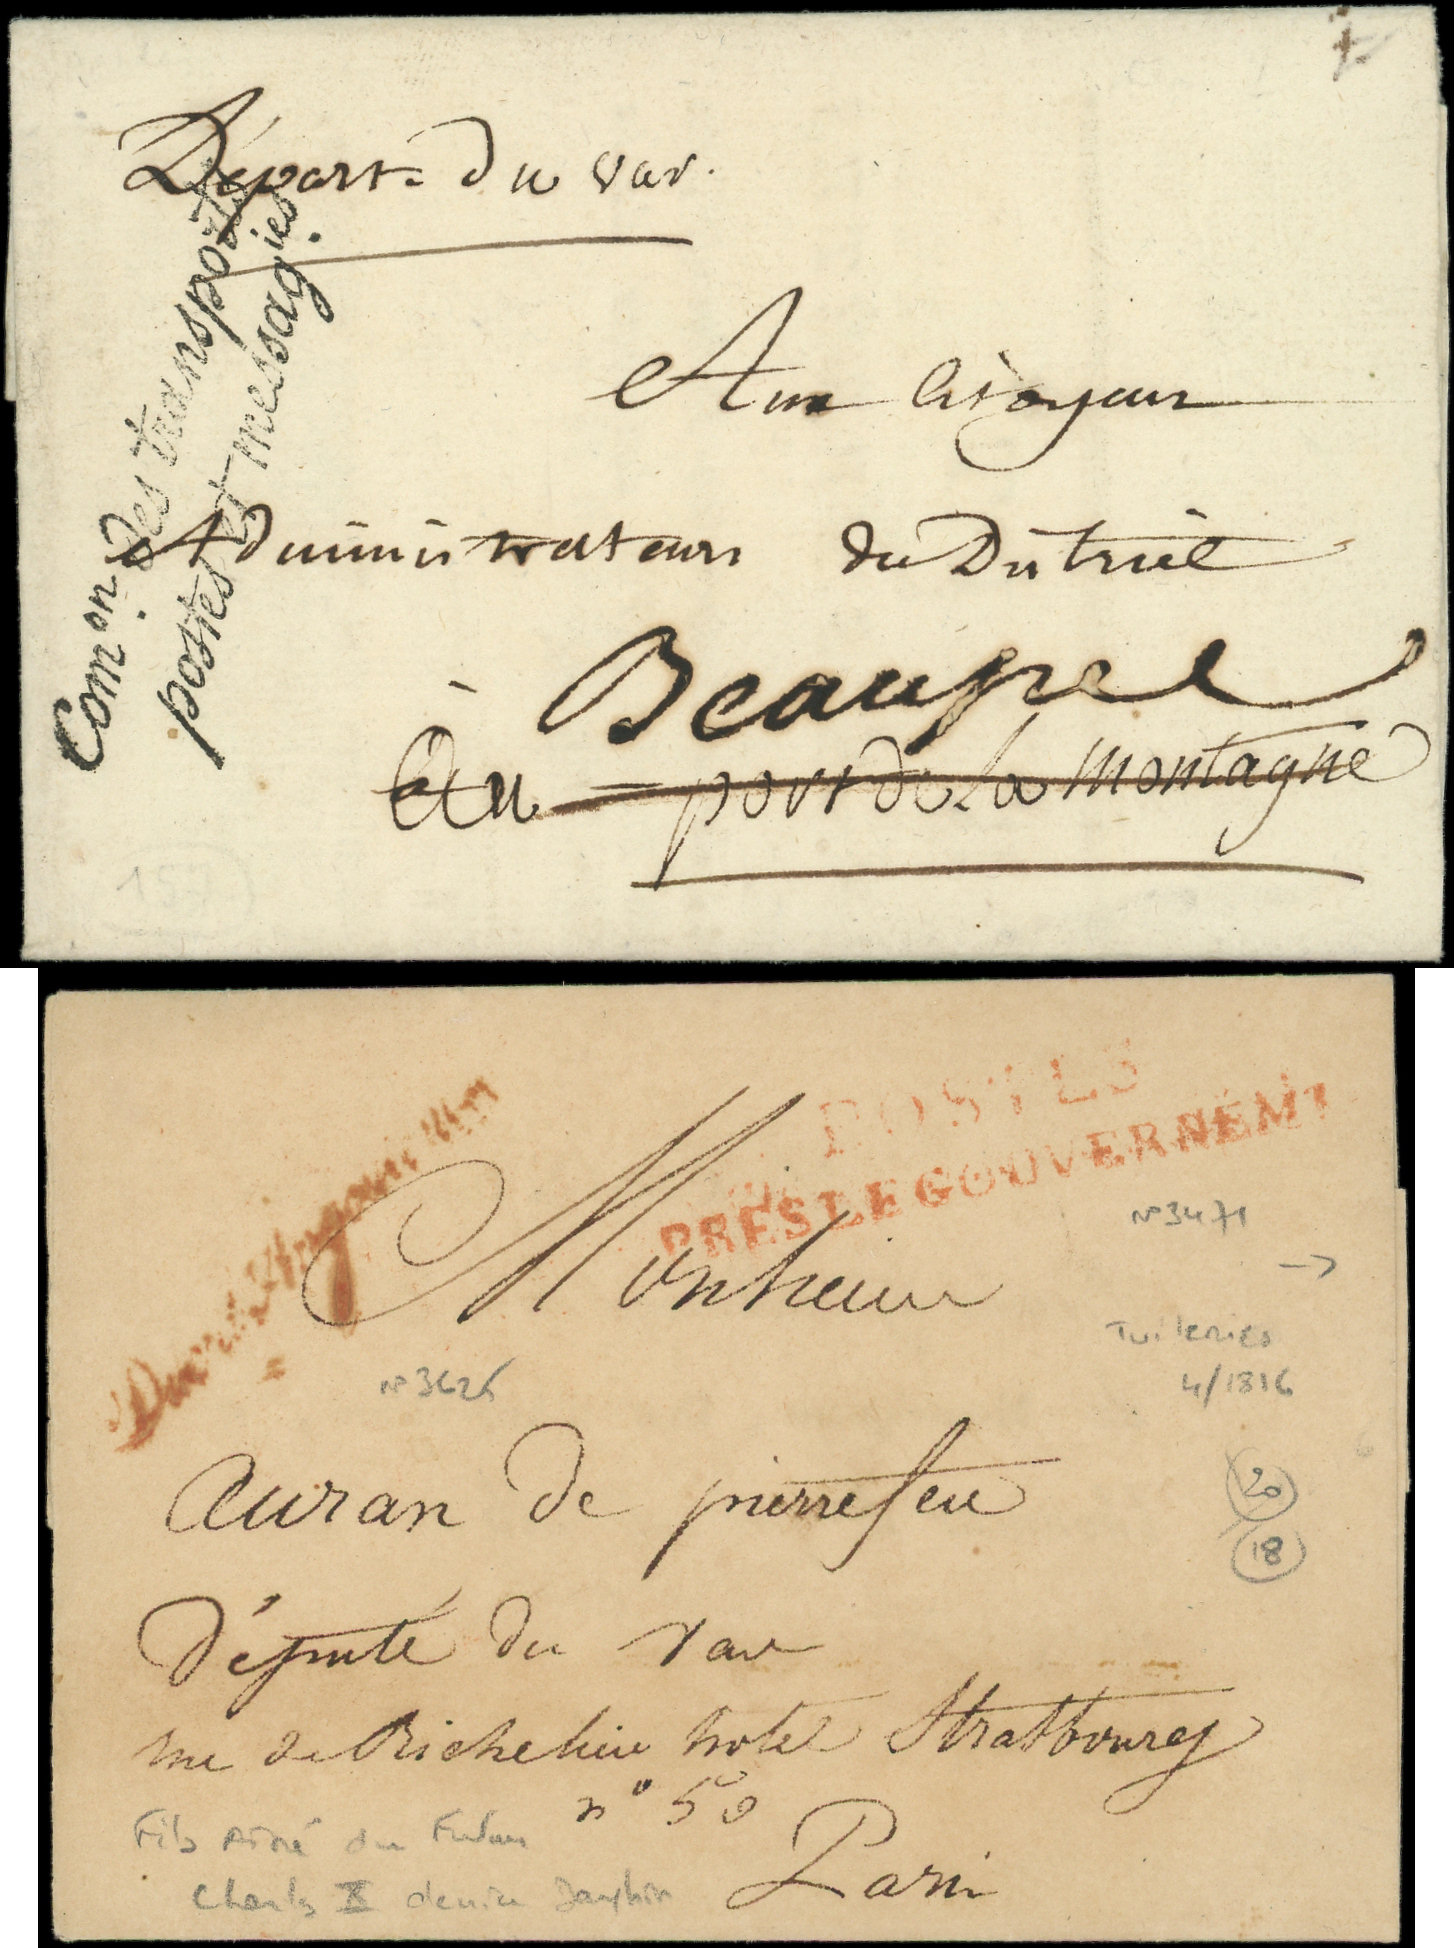 Départ. du var.
Com.on des transports
postes et messagies.
Aux Citoyens
Administrateurs du District
à Beaupré
Au port de la montagne
157
POSTES
PRÈS LE GOUVERNEMT
Monsieur
N° 3471
→
N° 3625
Tuileries
4/1816
auran de pierrefeu
20
18
député du var
rue de Richelieu hotel Strasbourg
n° 50
Paris
Fils Ainé du Futur
Charles X dernier Dauphin